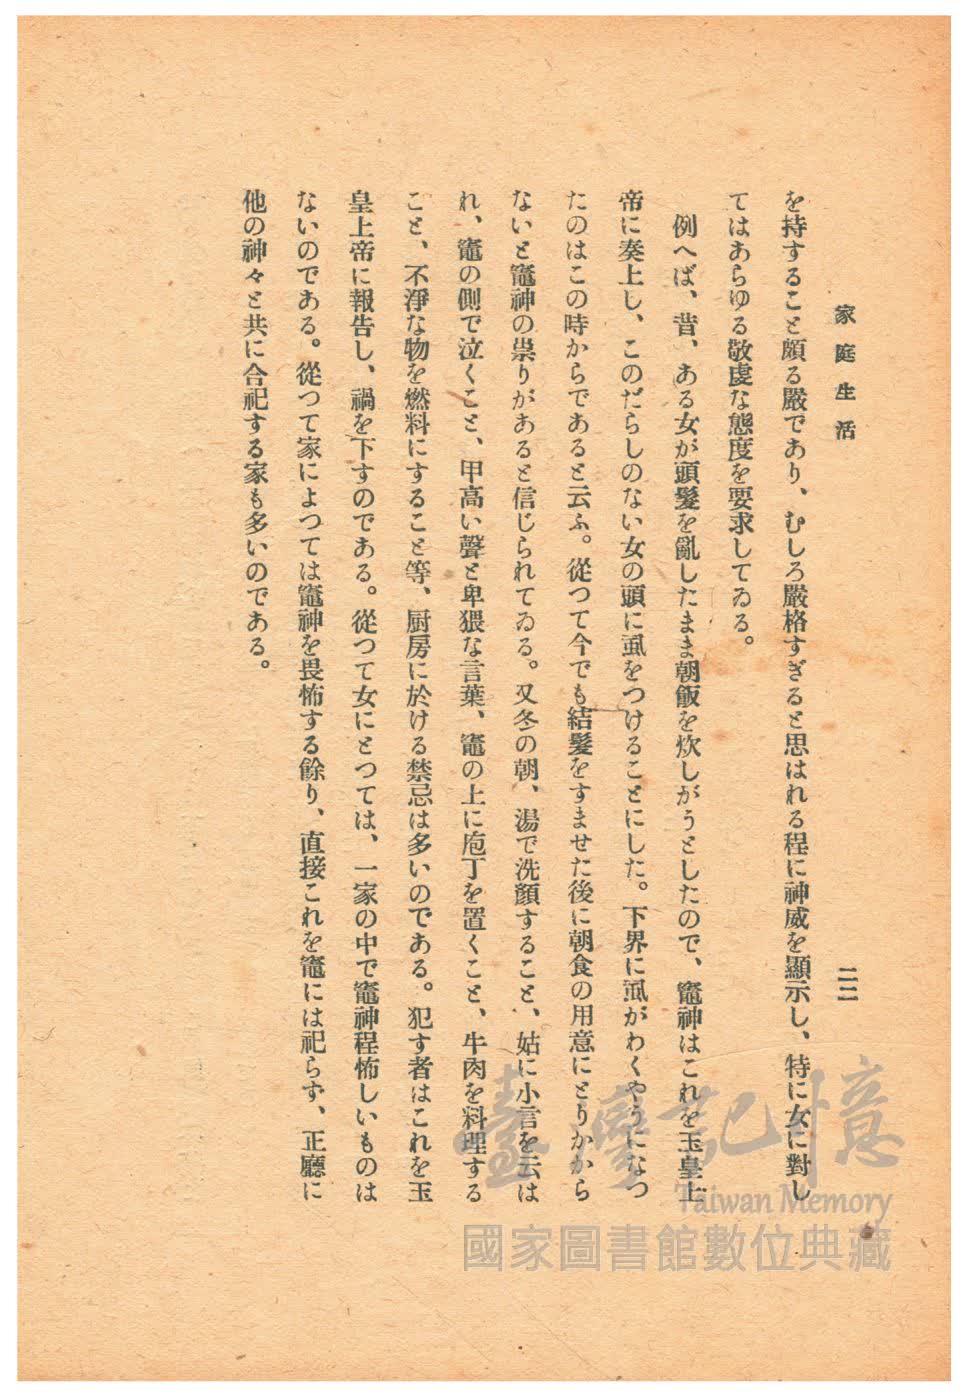 家庭生活
二二
を持すること頗る嚴であり、むしろ嚴格すぎると思はれる程に神威を顯示し、特に女に對し
てはあらゆる敬虔な態度を要求してゐる。
例へば、昔、ある女が頭髮を亂したまま朝飯を炊しがうとしたので、竈神はこれを玉皇上
帝に奏上し、このだらしのない女の頭に虱をつけることにした。下界に虱がわくやうになつ
たのはこの時からであると云ふ。從つて今でも結髮をすませた後に朝食の用意にとりかから
ないと竈神の祟りがあると信じられてゐる。又冬の朝、湯で洗顏すること、姑に小言を云は
れ、竈の側で泣くこと、甲高い聲と卑猥な言葉、竈の上に庖丁を置くこと、牛肉を料理する
こと、不淨な物を燃料にすること等、厨房に於ける禁忌は多いのである。犯す者はこれを玉
皇上帝に報告し、禍を下すのである。從つて女にとつては、一家の中で竈神程怖しいものは
ないのである。從つて家によつては竈神を畏怖する餘り、直接これを竈には祀らず、正廳に
他の神々と共に合祀する家も多いのである。
臺灣記憶
Taiwan Memory
國家圖書館數位典藏